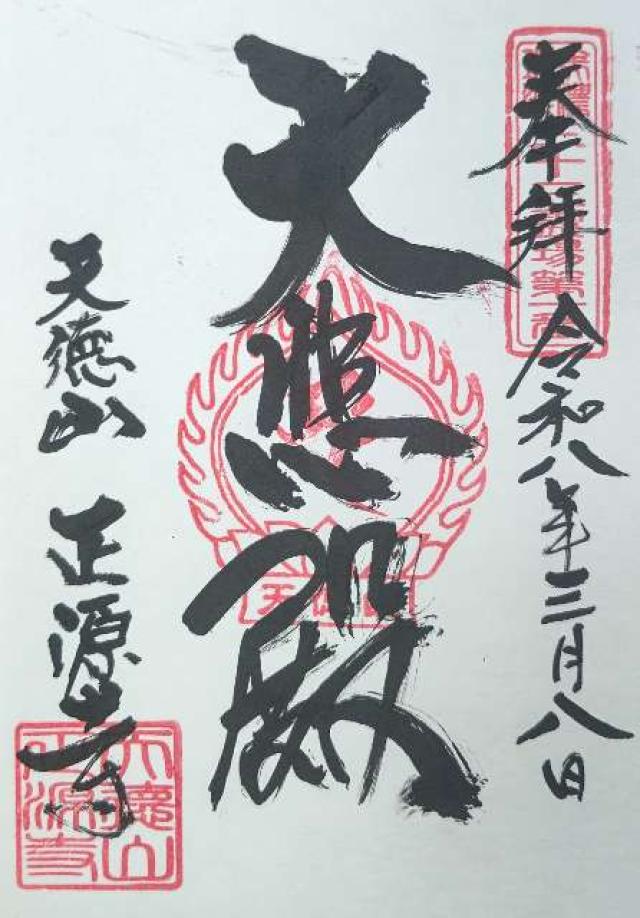 奉拝 令和八年三月八日
大悲殿
天徳山 正源寺
天徳山
正源寺